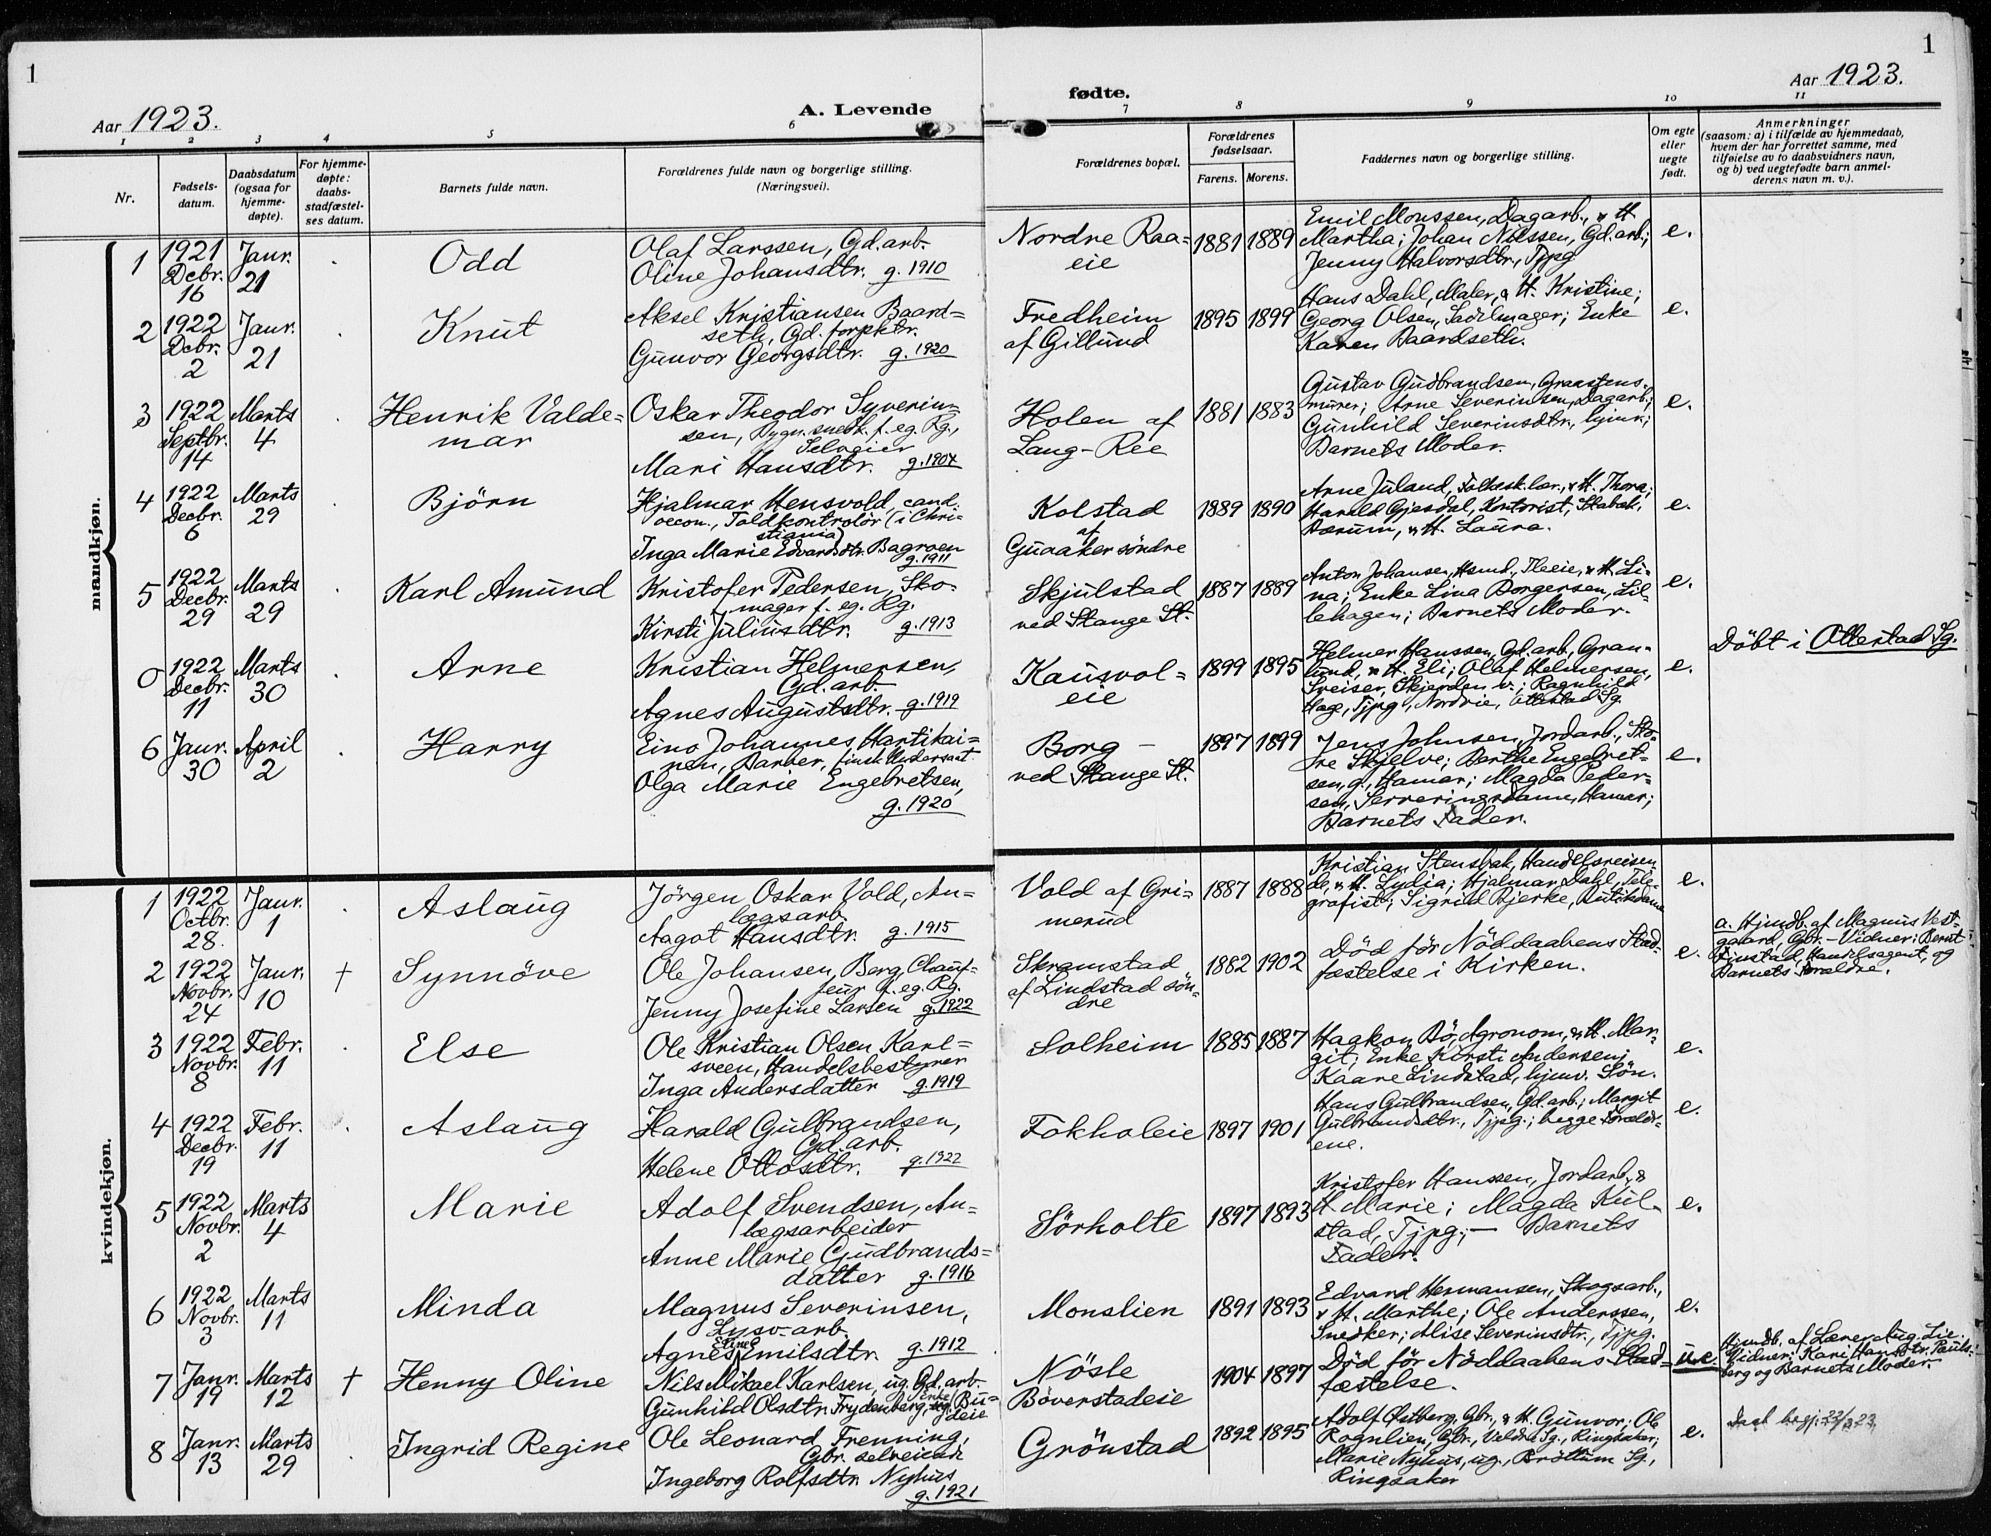 1
1
Aar 1923.
A. Levende
fødte.
Aar 1923.
1
2
3
4
5
6
7
8
9
10
11
Nr.
Fødsels-
datum.
Daabsdatum
(ogsaa for
hjemme-
døpte).
For hjemme-
døpte:
daabs-
stadfæstel-
ses datum.
Barnets fulde navn.
Forældrenes fulde navn og borgerlige stilling.
(Næringsvei).
Forældrenes bopæl.
Forældrenes
fødselsaar.
Farens.
Morens.
Faddernes navn og borgerlige stilling.
Om egte
eller
uegte
født.
Anmerkninger
(saasom: a) i tilfælde av hjemmedaab,
hvem der har forrettet samme, med
tilføielse av to daabsvidners navn,
og b) ved uegtefødte barn anmel-
derens navn m. v.).
mandkjøn.
1
1921
Dcbr.
16
Janr.
21
Odd
Olaf Larssen, Gd.arb.
Oline Johansdtr. g. 1910
Nordre Raa=
eie
1881
1889
Emil Monssen, Dagarb., & H.
Martha; Johan Nilssen, Gd.arb.;
Jenny Halvorsdtr., Tjpg.
e.
2
1922
Dcbr.
2
Janr.
21
Knut
Aksel Kristiansen Baard=
seth, Gd. forpktr.
Gunvor Georgsdtr. g. 1920
Fredheim
af Gillund
1895
1899
Hans Dahl, Maler, & H. Kristine;
Georg Olsen, Sadelmager; Enke
Karen Baardseth.
e.
3
1922
Septbr.
14
Marts
4
Henrik Valde=
mar
Oskar Theodor Syverin=
sen, Bygn.snedk. f. eg. Rg.,
Selveier
Mari Hansdtr. g. 1904
Holen af
Lang-Ree
1881
1883
Gustav Gudbrandsen, Graastens-
murer; Arne Severinsen, Dagarb.;
Gunhild Severinsdtr., hjmv.;
Barnets Moder.
e.
4
1922
Decbr.
6
Marts
29
Björn
Hjalmar Hensvold, cand.
oecon., Toldkontrolör (i Chri-
stiania)
Inga Marie Edvardsdtr. Bagroen
g. 1911
Kolstad
af
Guaaker söndre
1889
1890
Arne Juland, Folkesk.lær., & H. Thora;
Harald Gjesdal, Kontorist, Stabæk,
Bærum, & H. Laura.
e.
5
1922
Decbr.
29
Marts
29
Karl Amund
Kristofer Pedersen, Sko-
mager f. eg. Rg.
Kirsti Juliusdtr. g. 1913
Skjulstad
ved Stange St.
1887
1889
Anton Johansen, Hsmd., Fleeie, & H. Li-
na; Enke Lina Borgersen, Lil-
lehagen; Barnets Moder.
e.
0
1922
Decbr.
11
Marts
30
Arne
Kristian Helmersen,
Gd.arb.
Agnes Augustsdtr. g. 1919
Kausvol=
eie
1899
1895
Helmer Hanssen, Gd.arb., Gran-
lund, & H. Eli; Olaf Helmersen,
Sveiser, Skjerden v.; Ragnhild
Hage, Tjpg., Nordvie, Ottestad Sg.
e.
Döbt i Ottestad Sg.
6
Janr.
30
April
2
Harry
Eino Johannes Hartikai=
nen, Barber, finsk Undersaat
Olga Marie Engebretsen,
g. 1920
Borg -
ved Stange St.
1897
1899
Jens Johnsen, Jordarb., Sto-
re Skjelve; Berthe Engebret-
sen, g., Hamar; Magda Peder-
sen, Serveringsdame, Hamar;
Barnets Fader.
e.
kvindekjøn.
1
1922
Octbr.
28.
Janr.
1
Aslaug
Jörgen Oskar Vold, An-
lægsarb.
Aagot Hansdtr. g. 1915
Vold af Gri-
merud
1887
1888
Kristian Stensbak, Handelsreisen
de, & H. Lydia; Hjalmar Dahl, Tele-
grafist; Sigrid Bjerke, Butikdame
e.
2
1922
Novbr.
24
Janr.
10
†
Synnöve
Ole Johansen Berg, Chauf-
feur f. eg. Rg.
Jenny Josefine Larsen g. 1922
Skramstad
af Lindstad sön-
dre
1882
1902
Död för Nöddaabens Stad-
fæstelse i Kirken.
e.
a. Hjmdb. af Magnus Vest-
gaard, Gbr. - Vidner: Bernt
Finstad, Handelsagent, og
Barnets Forældre.
3
1922
Novbr.
8
Febr.
11
Else
Ole Kristian Olsen Karl=
sveen, Handelsbestyrer
Inga Andersdatter g. 1919
Solheim
1885
1887
Haakon Bö, Agronom, & H. Mar-
git; Enke Kirsti Andersen;
Kaare Lindstad, hjmv. Sön.
e.
4
1922
Decbr.
19
Febr.
11
Aslaug
Harald Gulbrandsen,
Gd.arb.
Helene Ottosdtr. g. 1922
Fokholeie
1897
1901
Hans Gulbrandsen, Gd.arb.; Margit
Gulbrandsdtr., Tjpg.; begge Foræld-
rene.
e.
5
1922
Novbr.
2
Marts
4
Marie
Adolf Svendsen, An-
lægsarbeider
Anne Marie Gudbrands=
datter g. 1916
Sörholte
1897
1893
Kristofer Hanssen, Jordarb., &
H. Marie; Magda Kul-
stad, Tjpg.; - Barnets
Fader.
e.
6
1922
Novbr.
3
Marts
11
Minda
Magnus Severinsen,
Lysv.arb.
Agnes Eline Emilsdtr. g. 1912
Monslien
1891
1893
Edvard Hermansen, Skogsarb.,
& H. Marthe; Ole Anderssen,
Snedker; Alise Severinsdtr., Tjpg.
e.
7
Janr.
19
Marts
12
†
Henny Oline
Nils Mikael Karlsen, ug. Gd.arb.
Gunhild Olsdtr. Frydenberg, Enke, Bö-
eie
Nösle
Böverstadeie
1904
1897
Död för Nöddaabens Stad=
fæstelse.
u.e.
Hjmdb. af Lærer Aug. Lie.
Vidner: Kari Hansdtr. Pauls-
berg og Barnets Moder.
8
Janr.
13
Marts
29
Ingrid Regine
Ole Leonard Frenning,
Gbr. selveiende
Ingeborg Rolfsdtr. Nyhus
g. 1921
Grönstad
1892
1895
Adolf Östberg, Gbr., & H. Gunvor; Ole
Rognlien, Gbr., Veldre Sg., Ringsaker;
Marie Nyhus, ug., Bröttum Sg.,
Ringsaker
e.
Daab begj. 22/3 23.